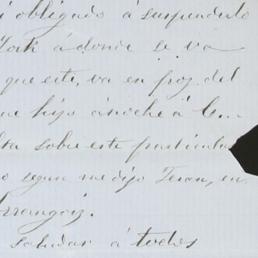 i obligado á suspenderlo
York á donde se va
que este, va en poz del
ue hijo á noche á C...
ta sobre este particular
o segun me dijo Teran, en
rrangoiz.
saludar á todos